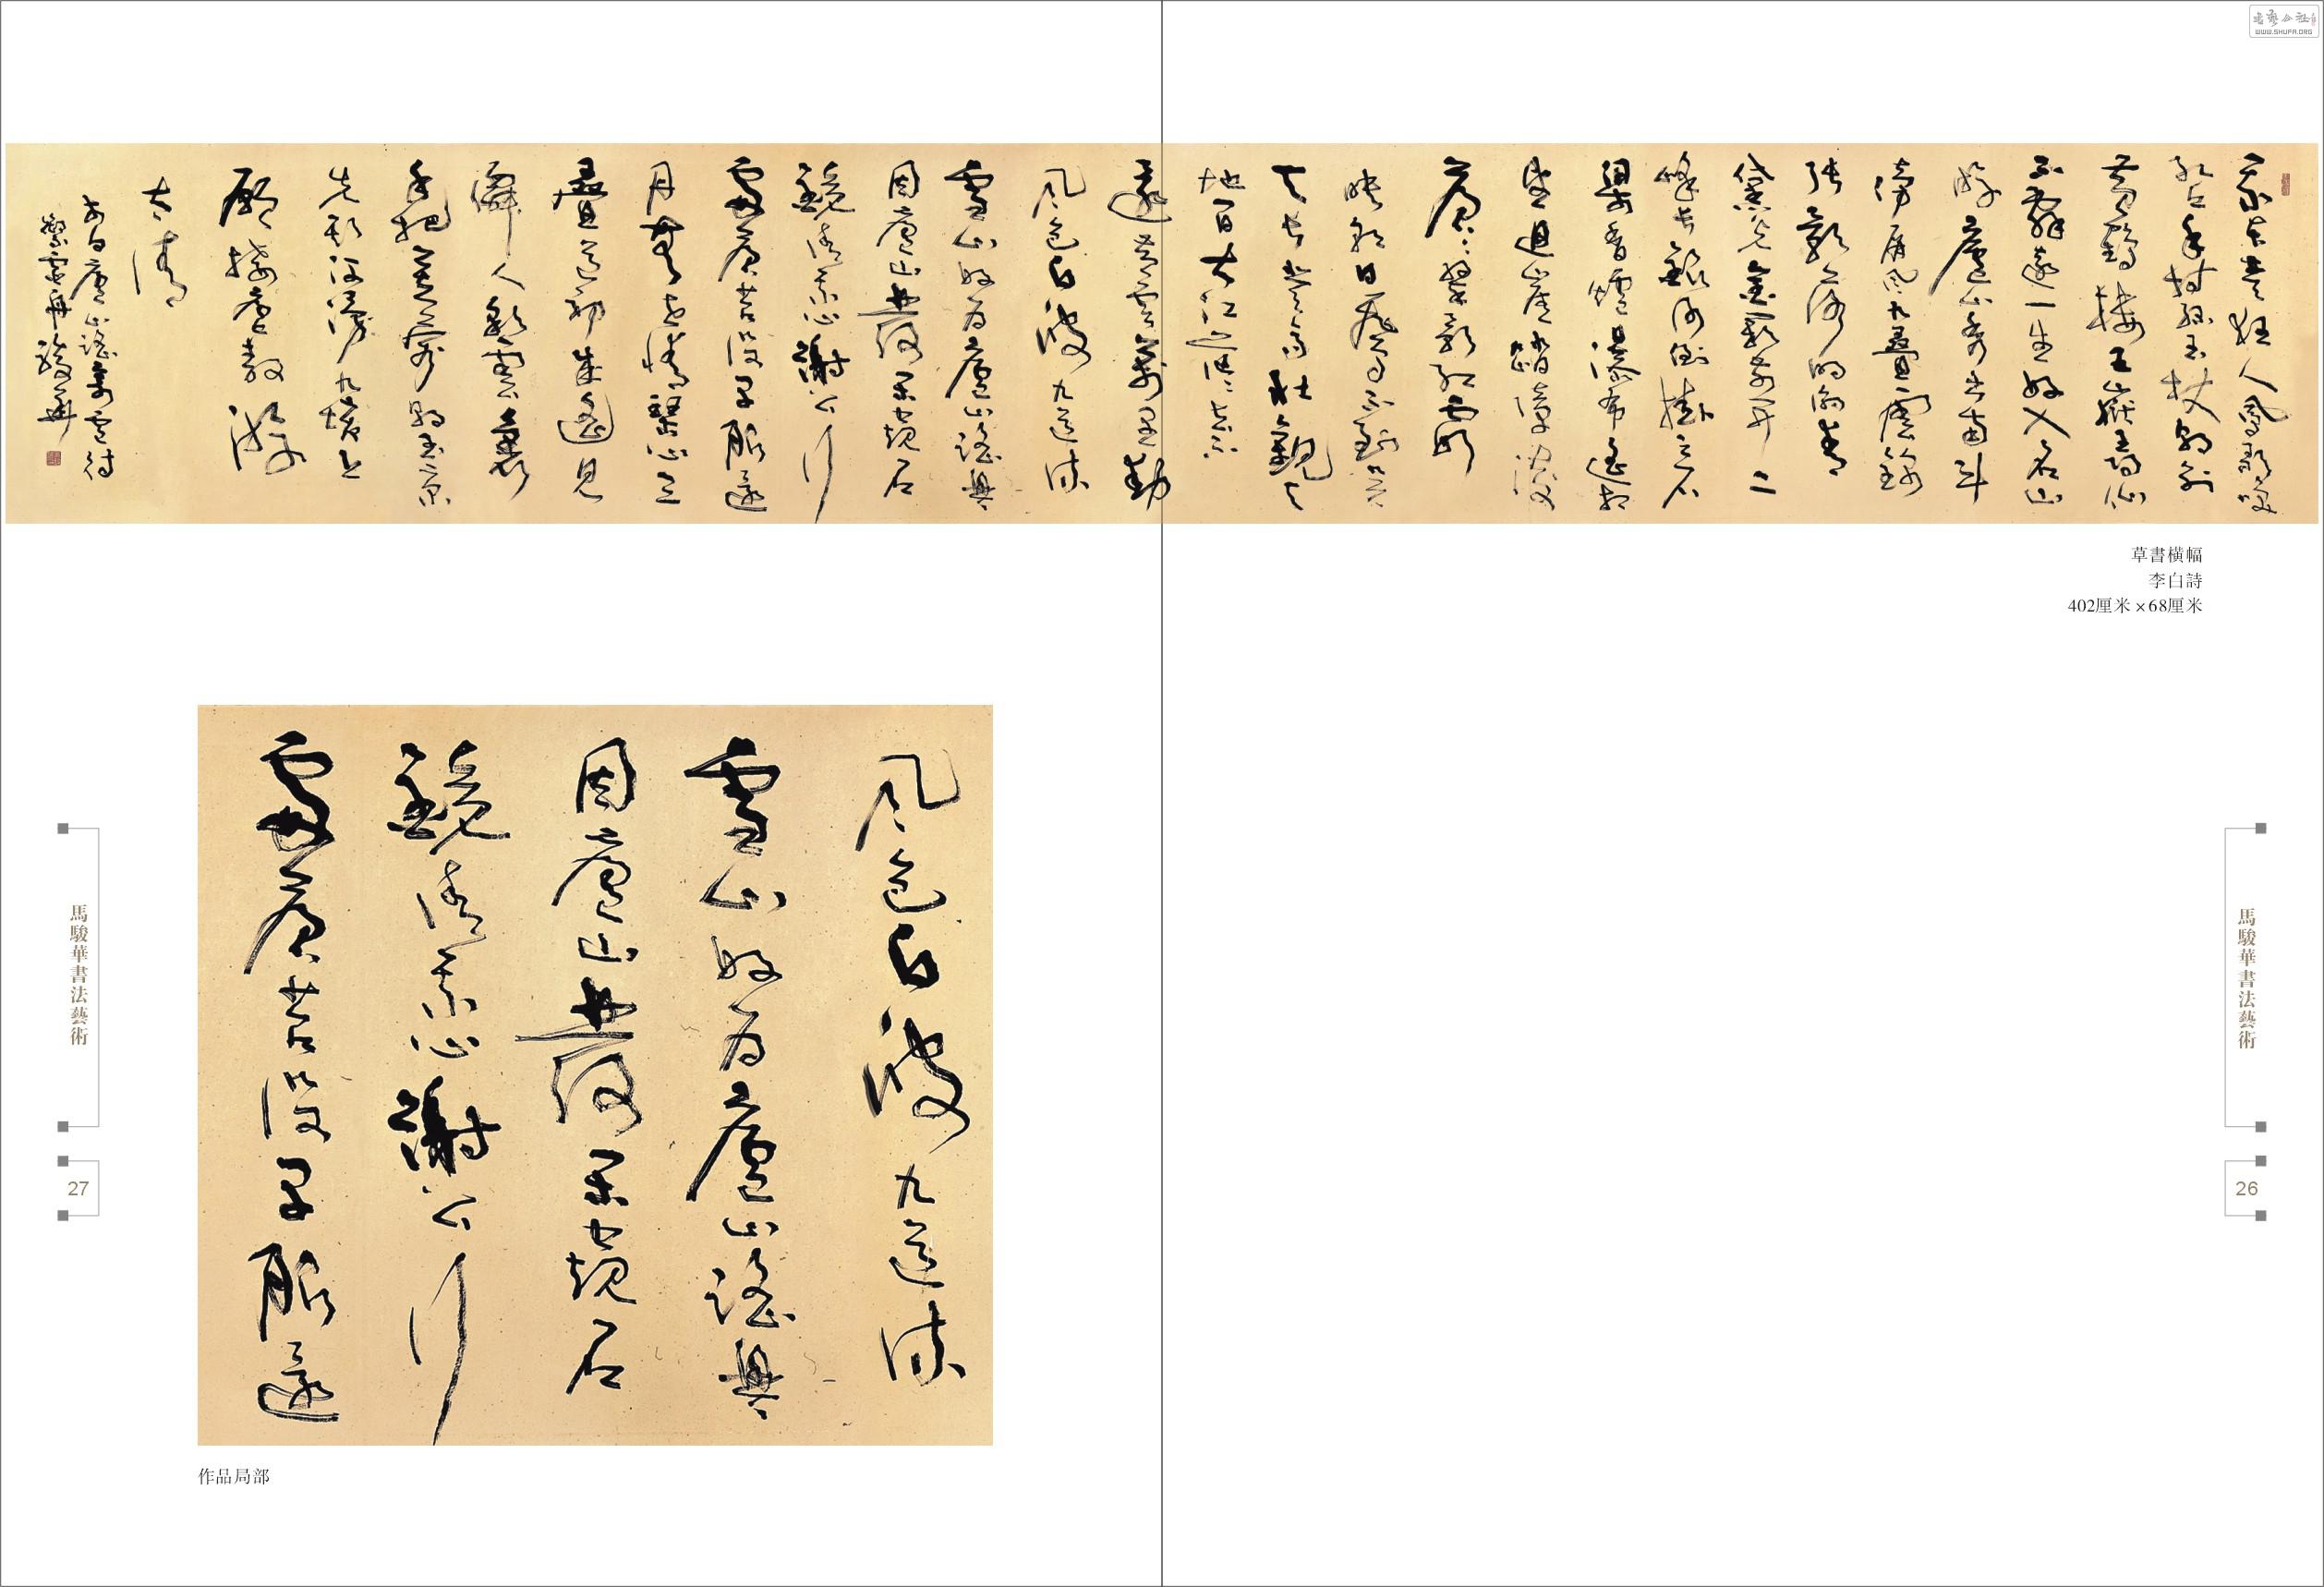 我本楚狂人鳳歌笑
孔丘手持綠玉杖朝別
黃鶴樓五嶽尋仙
不辭遠一生好入名山
遊廬山秀出南斗
傍屏風九疊雲錦
張影落明湖青
黛光金闕前開二
峰長銀河倒挂三石
梁香爐瀑布遙相
望迴崖沓嶂凌
蒼蒼翠影紅霞
映朝日鳥飛不到吳
天長登高壯觀天
地間大江茫茫去不
還黃雲萬里動
風色白波九道流
雪山好為廬山謠興
因廬山發閑窺石
鏡清我心謝公行
處蒼苔沒早服還
丹無世情琴心三
疊道初成遙見
僊人彩雲裏
手把芙蓉朝玉京
先期汗漫九垓上
願接盧敖遊
太清
李白廬山謠寄盧侍
御虛舟 駿華
草書橫幅
李白詩
402厘米×68厘米
風色白波九道流
雪山好為廬山謠興
因廬山發閑窺石
鏡清我心謝公行
處蒼苔沒早服還
作品局部
馬駿華書法藝術
26
馬駿華書法藝術
27
WWW.SHUFA.ORG